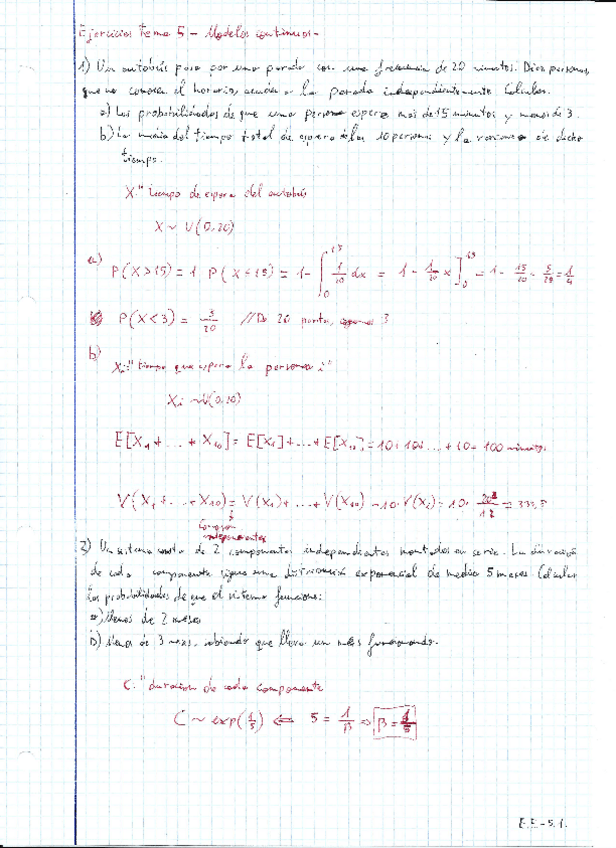 Ejercicios Tema 5 - Modelos continuos -
1) Un autobús pasa por una parada con una frecuencia de 20 minutos. Diez personas,
que no conocen el horario, acuden a la parada independientemente. Calcular:
a) Las probabilidades de que una persona espere más de 15 minutos y menos de 3.
b) La media del tiempo total de espera de las 10 personas y la varianza de dicho
tiempo.
X: "tiempo de espera del autobús
X ~ U(0,20)
a) P(X>15) = 1 P(X≤15) = 1 - ∫₀¹⁵ 1/20 dx = 1 - 1/20 x]₀¹⁵ = 1 - 15/20 = 5/20 = 1/4
P(X<3) = 3/20 // De 20 puntos, 3
b)
Xi: "tiempo que espera la persona i"
Xi ~ U(0,20)
E[X₁ + ... + X₁₀] = E[X₁] + ... + E[X₁₀] = 10 + 10 + ... + 10 = 100 minutos.
V(X₁ + ... + X₁₀) = V(X₁) + ... + V(X₁₀) = 10·V(Xi) = 10· 20²/12 = 333,3
independientes
2) Un sistema consta de 2 componentes independientes montados en serie. La duración
de cada componente sigue una distribución exponencial de media 5 meses. Calcular
las probabilidades de que el sistema funcione:
a) Menos de 2 meses
b) Menos de 3 meses, sabiendo que lleva un mes funcionando.
C: "duración de cada componente
C ~ exp(1/5) ⇐ 5 = 1/β ⇒ β = 1/5
E.E-5.1.